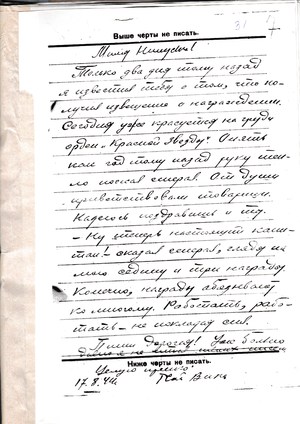 31
Выше черты не писать.
Милая Нинусик!
Только два дня тому назад
я известил тебя о том, что по-
лучил извещение о награждении.
Сегодня уже красуется на груди
орден "Красной Звезды". Опять
как год тому назад руку
пожал генерал. От души
приветствовали товарищи.
Надеюсь поздравишь и ты.
- Ну теперь
- сказал генерал, глядя на
мою седину и три награды.
Конечно, награды обязывают
ко многому. Работать, рабо-
тать - не покладая сил.
Пиши дорогой! Уж больно
Ниже черты не писать.
Целую крепко!
17.8.44. Твой Вика